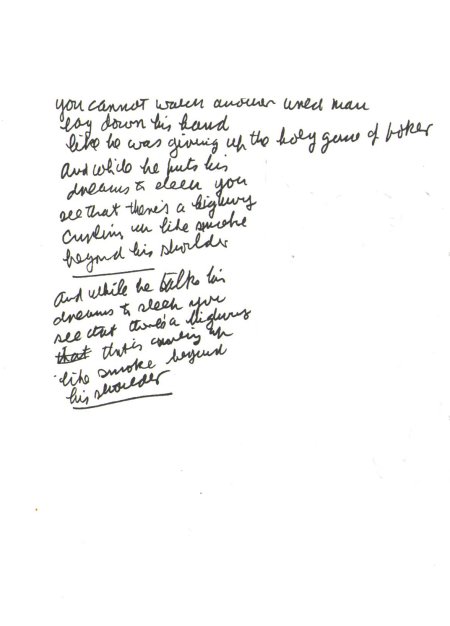 you cannot watch another tired man
lay down his hand
like he was giving up the holy game of poker
And while he puts his
dreams to sleep you
see that there's a highway
curling up like smoke
beyond his shoulder
And while he talks his
dreams to sleep you
see that there's a highway
that that is curling up
like smoke beyond
his shoulder